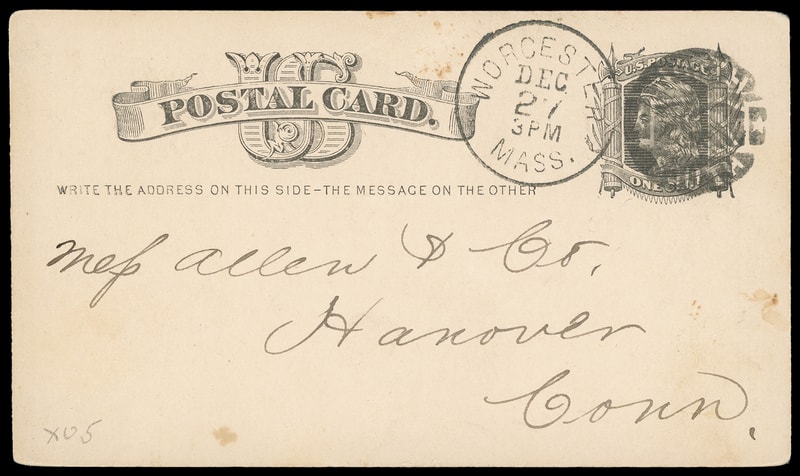 US
POSTAL CARD.
WRITE THE ADDRESS ON THIS SIDE-THE MESSAGE ON THE OTHER
WORCESTER
DEC
27
3PM
MASS.
U.S. POSTAGE
ONE
Mess Allen & Co.
Hanover
Conn.
XU5